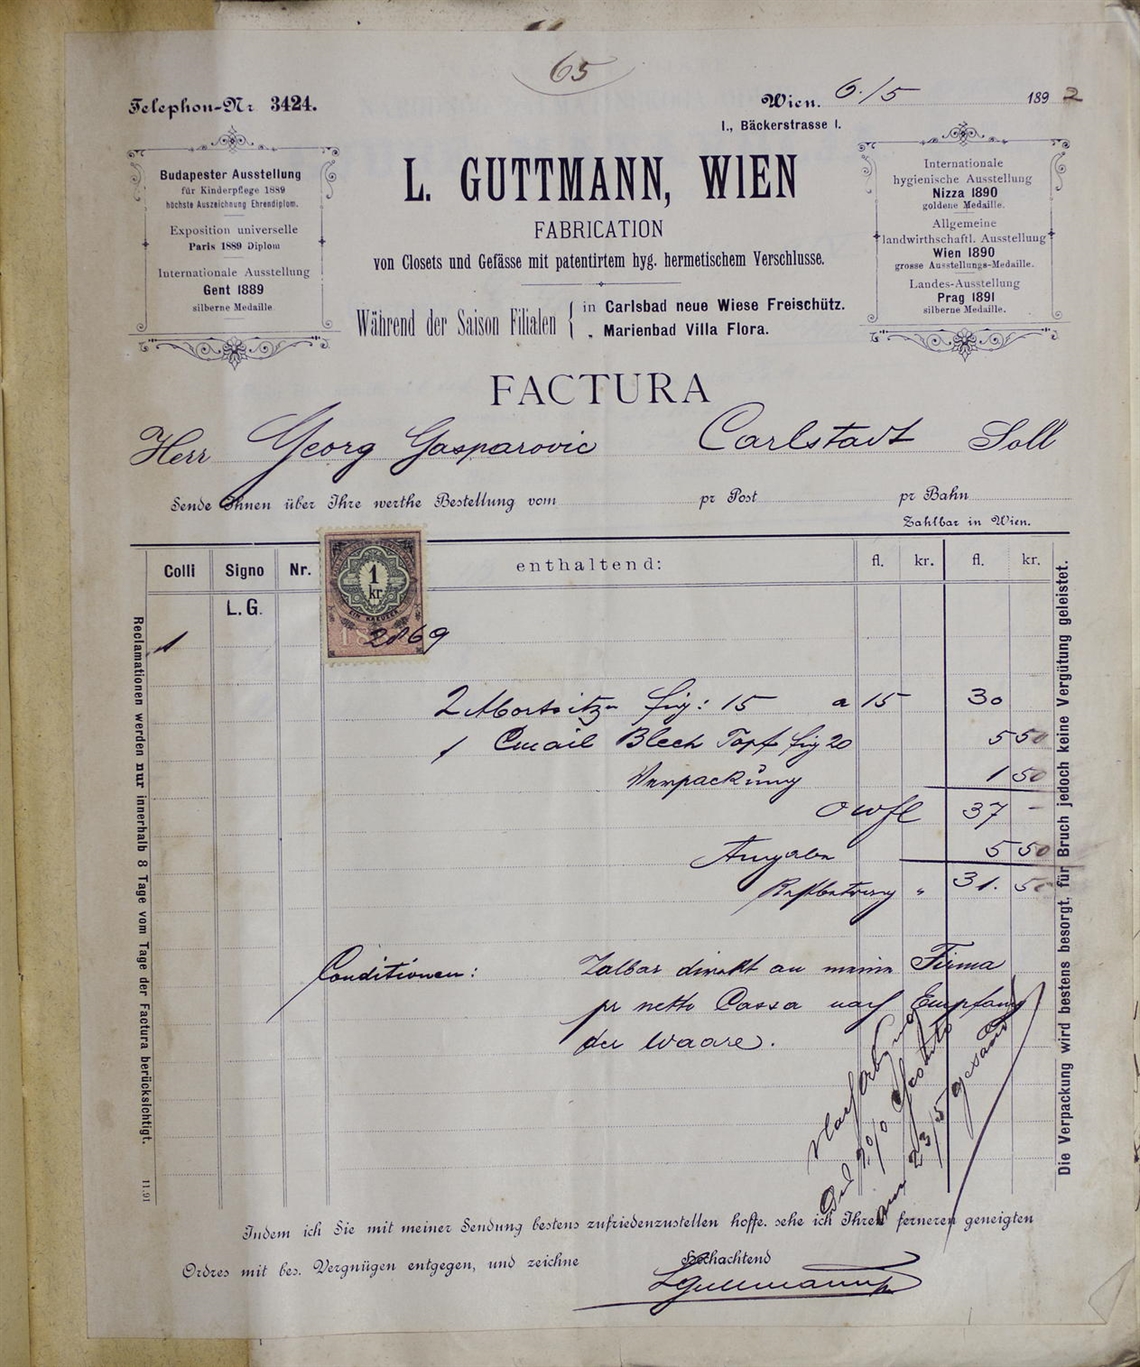 65
Telephon-Nr. 3424.
Wien. 6./5 1892
I., Bäckerstrasse I.
Budapester Ausstellung
für Kinderpflege 1889
höchste Auszeichnung Ehrendiplom.
Exposition universelle
Paris 1889 Diplom
Internationale Ausstellung
Gent 1889
silberne Medaille.
L. GUTTMANN, WIEN
FABRICATION
von Closets und Gefässe mit patentirtem hyg. hermetischem Verschlusse.
Während der Saison Filialen
in Carlsbad neue Wiese Freischütz.
„ Marienbad Villa Flora.
Internationale
hygienische Ausstellung
Nizza 1890
goldene Medaille.
Allgemeine
landwirthschaftl. Ausstellung
Wien 1890
grosse Ausstellungs-Medaille.
Landes-Ausstellung
Prag 1891
silberne Medaille.
FACTURA
Herr Georg Gasparovic Carlstadt Soll
Sende Ihnen über Ihre werthe Bestellung vom pr Post pr Bahn
Zahlbar in Wien.
Colli Signo Nr. enthaltend: fl. kr. fl. kr.
L. G.
1
1
kr.
EIN KREUZER
2869
2 fig: 15 a 15 30
1 Email Blech Topf fig 20 5 50
Verpackung 1 50
öwfl 37 -
5 50
" 31. 50
Conditionen: Zalbar direkt an meine Firma
pr netto Cassa nach Empfang
der Waare.
23/5 gesand
Reclamationen werden nur innerhalb 8 Tage vom Tage der Factura berücksichtigt.
11.91
Die Verpackung wird bestens besorgt, für Bruch jedoch keine Vergütung geleistet.
Indem ich Sie mit meiner Sendung bestens zufriedenzustellen hoffe. sehe ich Ihren ferneren geneigten
Ordres mit bes. Vergnügen entgegen, und zeichne
Hochachtend
LGuttmann